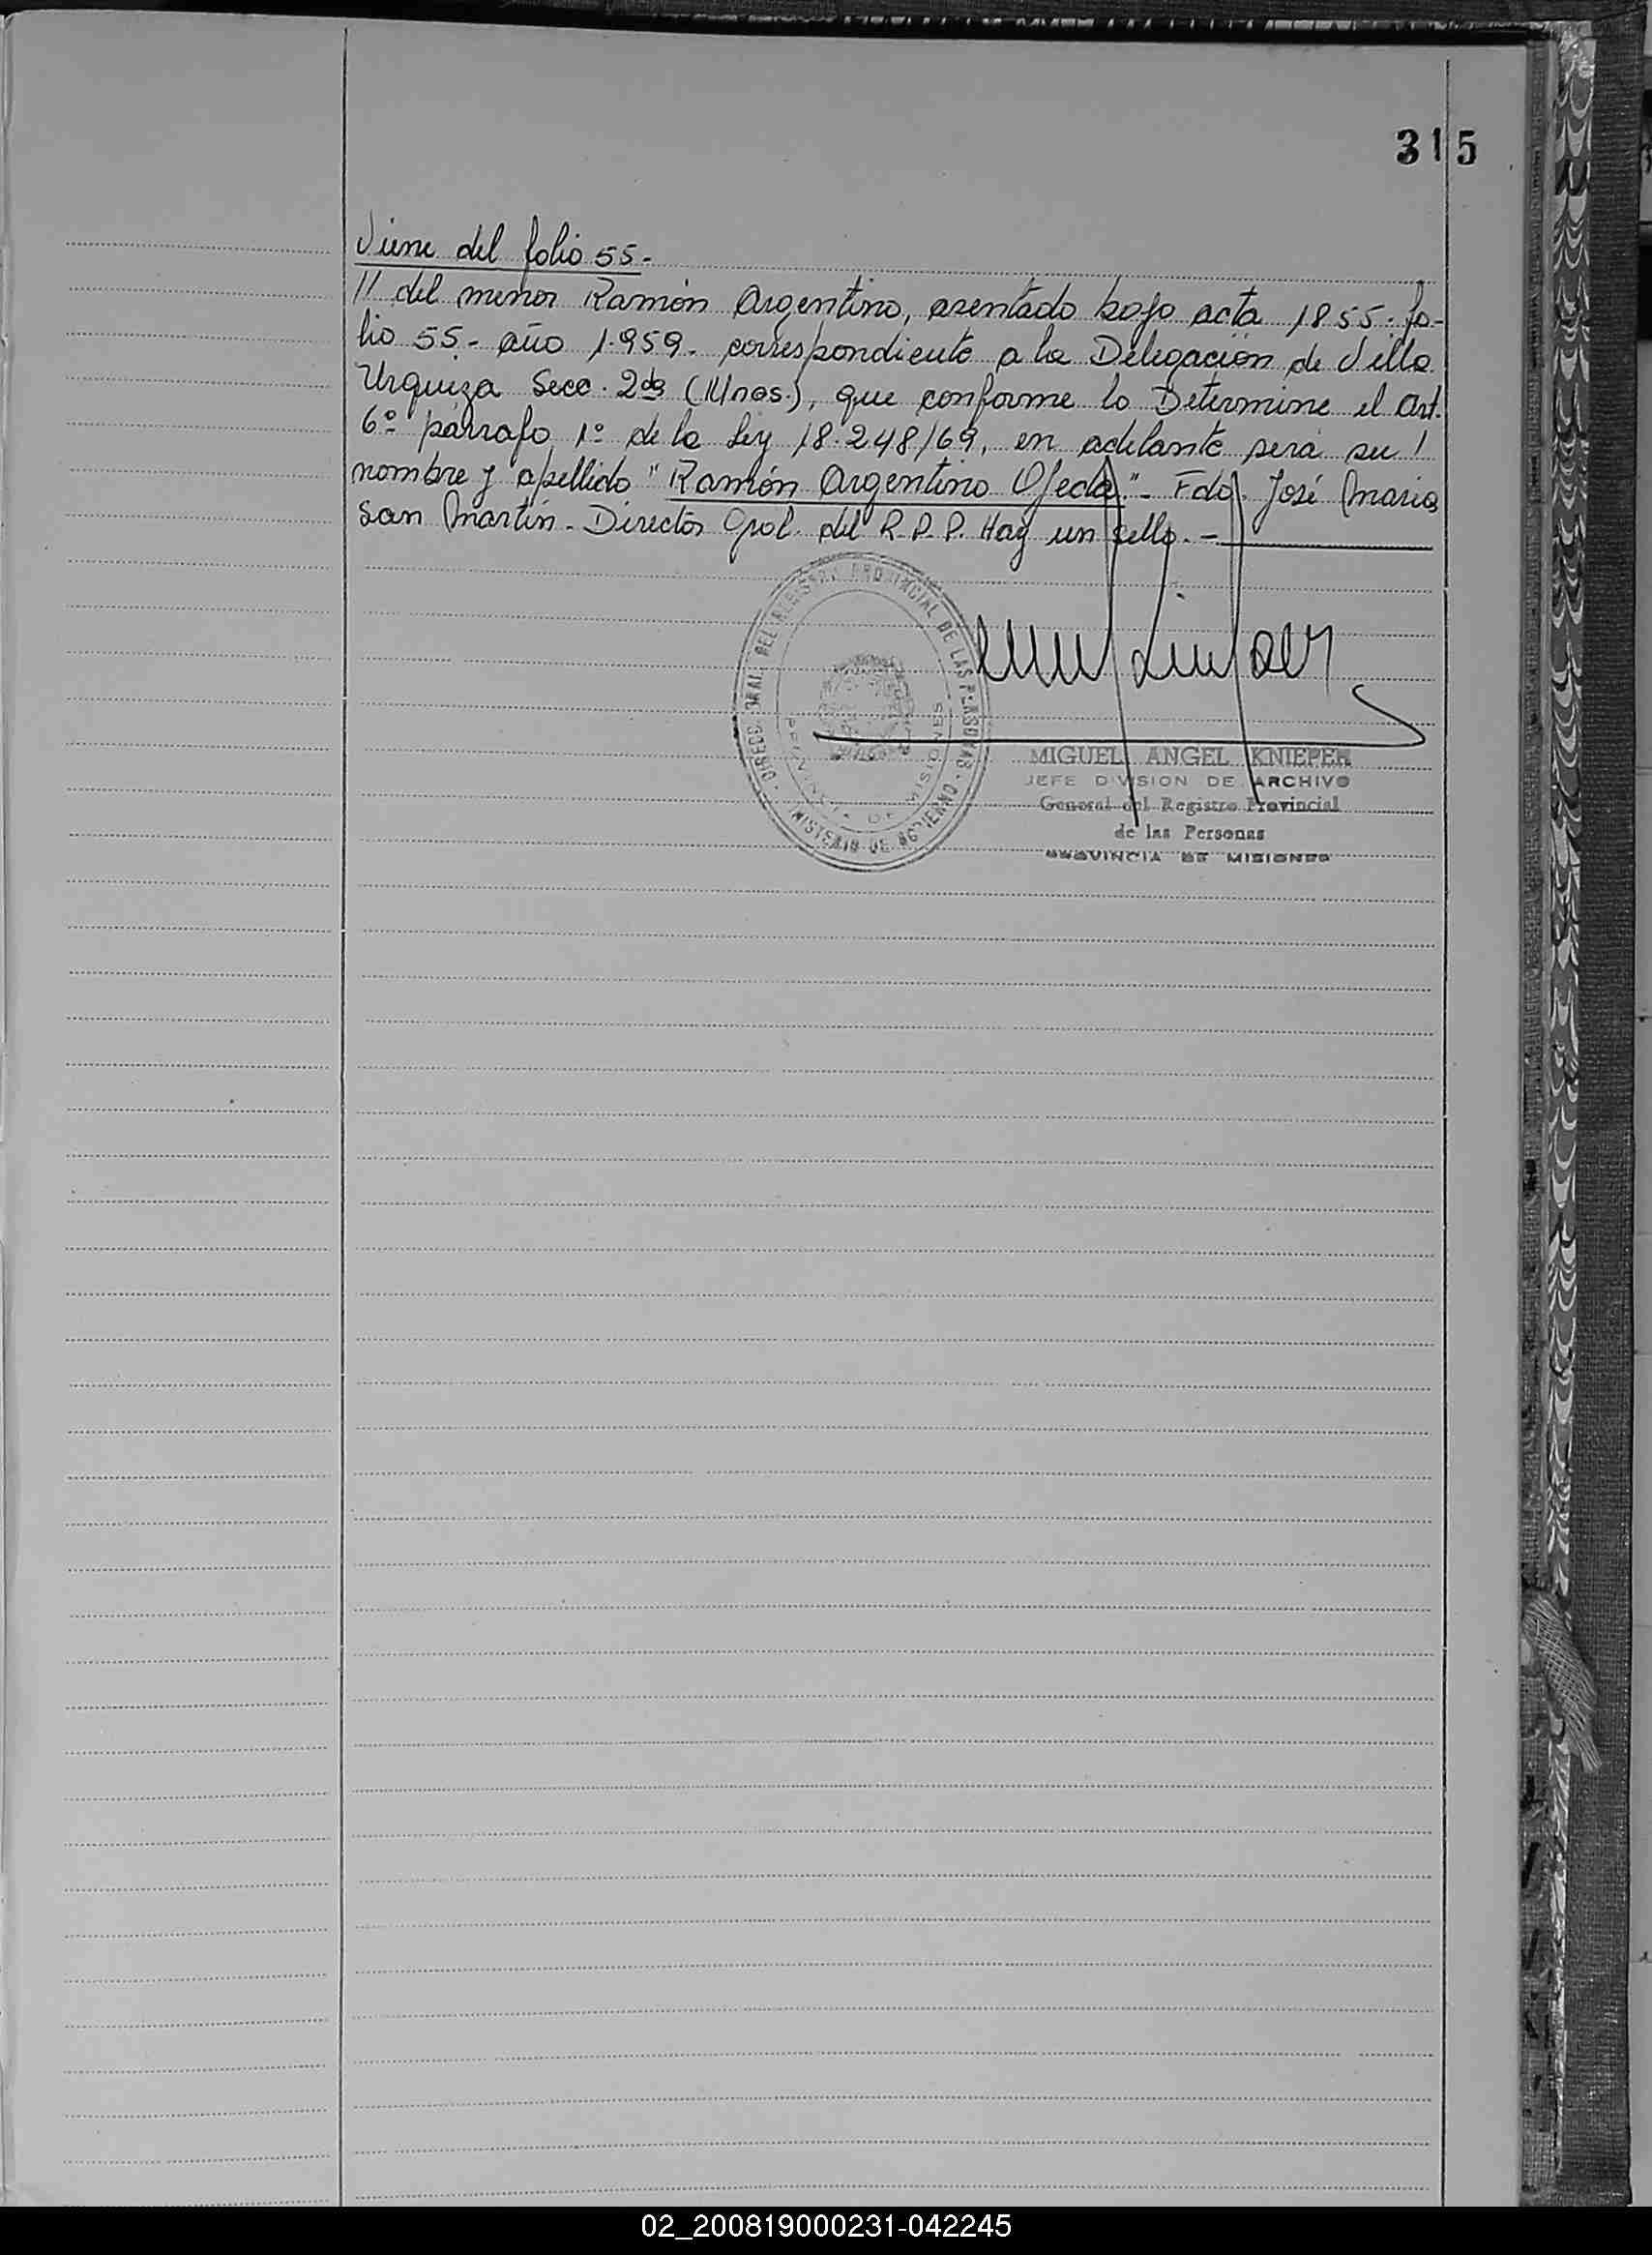 315
Viene del folio 55.-
// del menor Ramón Argentino, asentado bajo acta 1855- fo-
lio 55.- año 1.959- correspondiente a la Delegación de Villa
Urquiza Secc. 2da (Mnes.), que conforme lo Determine el art.
6º párrafo 1º de la Ley 18.248/69, en adelante será su /
nombre y apellido "Ramón Argentino Ojeda".- Fdo. José Maria
San Martín.- Director Gral. del R.P.P. Hay un sello.-
DIRECC. GRAL. DEL REGISTRO PROVINCIAL DE LAS PERSONAS
MINISTERIO DE GOBIERNO
PROVINCIA DE MISIONES
MIGUEL ANGEL KNIEPER
JEFE DIVISION DE ARCHIVO
General del Registro Provincial
de las Personas
PROVINCIA DE MISIONES
02_200819000231-042245